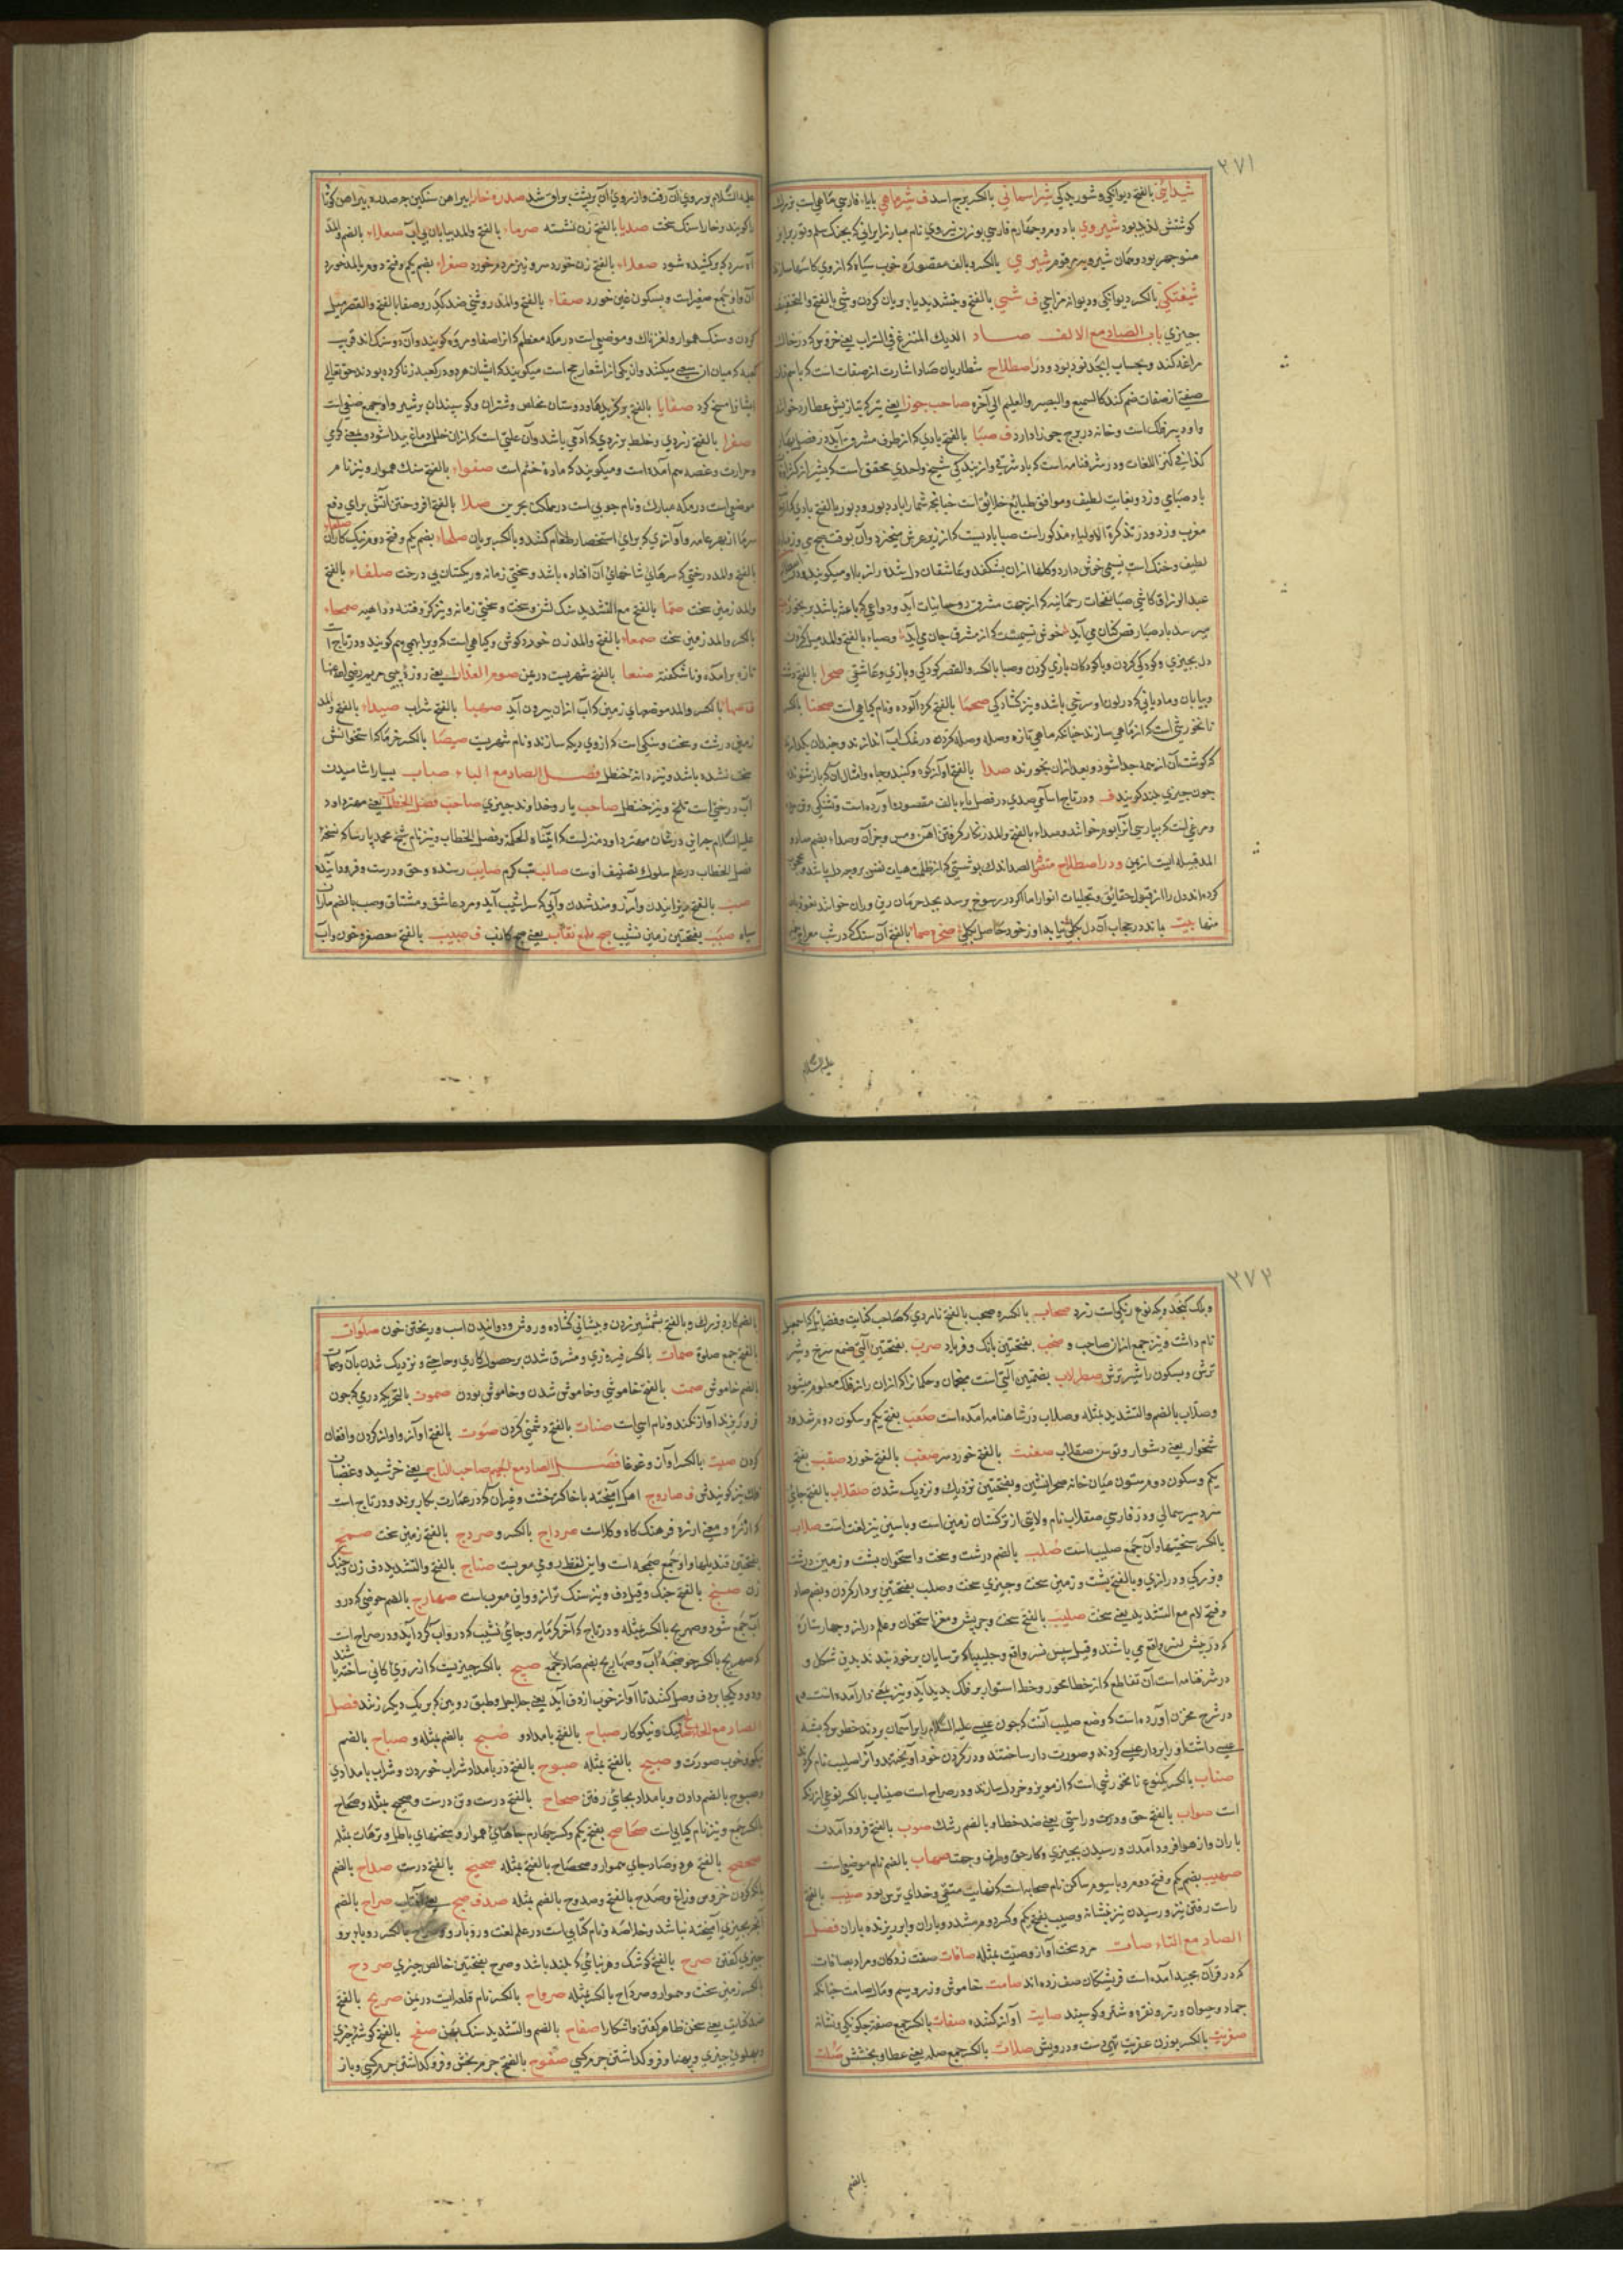 ٢٧١
شیدائی بالفتح دیوانگی و شوریدگی شیر اسمانی بالکسر برج اسد ف شیر ماهی بایاء فارسی ماهی است
کوشتش لذیذ بود شیروی با دوم و چهارم فارسی بوزن نیروی نام مبارز ایرانی که بجنک سلم و تور برابر
منوچهر بود و همان شیرویه مرقوم شیزی بالکسر و بالف مقصوره خوب سیاه که ازوی کاسها سازند
شیفتکی بالکسر دیوانکی و دیوانه مزاجی ف شی بالفتح و بتشدید یا بریان کردن وشی بالفتح والتخفیف
چیزی باب الصاد مع الالف صاد الدیک المتمرغ فی التراب یعنی خروس که در خاک
مراغه کند و بحساب ابجد نود بود و در اصطلاح شطاریان صاد اشارت از صفات است که با اسم ذات
صفتی از صفات ضم کند کالسمیع والبصیر والعلیم الی آخره صاحب جوزا یعنی تیر که بتازیش عطارد خوانند
واو دبیر فلک است و خانه در برج جوزا دارد ف صبا بالفتح بادی که از طرف مشرق آید در فصل بهار
کذا فی کنز اللغات و در شرفنامه است که باد شرقی و از بندکی شیخ واحدی محقق است که
باد صبا می وزد و بغایت لطیف و موافق طبایع خلایق است چنانچه شمارا باد دبور و دبور بالفتح بادی که از
مغرب وزد و در تذکرة الاولیاء مذکور است صبا بادیست که از زیر عرش میخیزد و آن بوقت صبح می وزد
لطیف و خنک است نسیمی خوش دارد و کلها ازان بشکفد و عاشقان دل شده راز با او میکویند
عبدالرزاق کاشی صبا نفحات رحمانیه که از جهت مشرق روحانیات آید و دواعی که باعث باشد بر خیر
میرسد باد صبا رقص کنان می آید خوش نسیمیست که از مشرق جان می آید و صباء بالفتح والمد میل کردن
دل بچیزی و کودکی کردن و با کودکان بازی کردن و صبا بالکسر والقصر کودکی و بازی و عاشقی صحرا بالفتح دشت
و بیابان و مادیانی که در لون او سرخی باشد و نیز کشادگی صحنا بالفتح کرد آلوده و نام کیاهی است صحنا بالکسر
نانخورشی است که از ماهی سازند چنانکه ماهی تازه وصله وصله کرده در نمک آب اندازند و چندان بکذارند
که کوشت آن از هم جدا شود و بعد ازان بخورند صدا بالفتح آواز کوه و کنبد و چاه و امثال آن که باز شنوند
چون چیزی بلند کویند ف و در تاج اسامی صدی در فصل یاء بالف مقصوره آورده است و تشنکی و
و مرغی است که بپارسی آنرا بوم خوانند و صداء بالفتح والمد زنکار کرفتن آهن و مس و جز آن و صداء بضم صاد و
المد قبیله ایست از یمن و در اصطلاح متصوفه الصداء اندک پوشیشی که از ظلمت هیات نفس بر وجه دل باشد و
کرده اند دل را از قبول حقایق و تجلیات انوار اما اکر در رسوخ برسد بحد حرمان رین و ران خوانند نعوذ بالله
منها بیت باند در حجاب آن دل بکلی نیابد او ز خود حاصل بکلی صخره صما بالفتح آن سنک که در شب معراج
علیه السلام
علیه السلام بر وی آن رفت و از روی آن بر پشت براق شد صدره خارا پیراهن سنکین چه صدره پیراهن کوتا
را کویند و خارا سنک سخت صدیا بالفتح زن تشنه صرماء بالفتح والمد بیابان بی آب صعداء بالضم والمد
آه سرد که بر کشیده شود صعلاء بالفتح زن خورد سر و نیز مردم خورد صغراء بضم یکم و فتح دوم بالمد خورد
آن و او جمع صغیر است و بسکون غین خورد صفاء بالفتح والمد روشنی ضد کدر و صفا بالفتح والقصر میل
کردن و سنک هموار و لغزناک و موضعی است در مکه معظم که انرا صفا و مروه کویند و آن دو سنک اند قریب
کعبه که میان ان سعی میکنند و آن یکی از اشعار حج است میکویند که ایشان هر دو در کعبه زنا کرده بودند حق تعالی
ایشان را مسخ کرد صفایا بالفتح برکزیدها و دوستان مخلص و شتران و کوسپندان پر شیر و او جمع صفی است
صفرا بالفتح زردی و خلط بزردی که آدمی باشد و آن علتی است که ازان خلل دماغ پیدا شود و یعنی کرمی
و حرارت و غصه هم آمده است و میکویند که ماده خشم است صفواء بالفتح سنک هموار و نیز نام
موضعی است در مکه مبارک و نام جویی است در ملک بحرین صلا بالفتح افروختن اتش برای دفع
سرما از بهر عامه و آوازی که برای استحضار طعام کنند و بالکسر بریان صلحاء بضم یکم و فتح دوم نیک کاران
بالفتح والمد درختی که سرهای شاخهای آن افتاده باشد و سختی زمانه و ریکستان بی درخت صلفاء بالفتح
والمد زمین سخت صما بالفتح مع التشدید سنک لشن و سخت و سختی زمانه و نیز کر و فتنه و داهیه صمحاء
بالکسر والمد زمین سخت صمعاء بالفتح والمد زن خورد کوش و کیاهی است که ویرا بهمی هم کویند و در تاج است
تازه برآمده و ناشکفته صنعا بالفتح شهریست در یمن صوم العذراء یعنی روزه بی بی مریم رضی الله عنها
ف صهاء بالکسر والمد موضعهای زمین که آب ازان بیرون آید صهبا بالفتح شراب صیداء بالفتح والمد
زمین درشت و سخت و سنکی است که ازوی دیک سازند و نام شهریست صیصا بالکسر خرما که استخوانش
سخت نشده باشد و نیز دانه حنظل فصل الصاد مع الباء صباب بسیار آشامیدن
آب درختی است تلخ و نیز حنظل صاحب یار و خداوند چیزی صاحب فصل الخطاب یعنی مهتر داود
علیه السلام چرا که در شان مهتر داود منزلست که اتیناه الحکمة و فصل الخطاب و نیز نام شیخ محمد پارسا که نسخه
فصل الخطاب در علم سلوک تصنیف اوست صالب تب کرم صایب رسنده و حق و درست و فرود آینده
صب بالفتح ریزانیدن و آرزومند شدن و آبی که سراشیب آید و مرد عاشق و مشتاق و صب بالضم ماران
سیاه صبب بفتحتین زمین نشیب صبح ملمع نقاب یعنی صبح کاذب ف صبیب بالفتح معصفر و خون و آب
٢٧٢
و بلک کنجد و یک نوع رنکی است زرد صحاب بالکسر و صحب بالفتح نام مردی که صاحب کفایت و فضایل که اسمعیل
نام داشت و نیز جمع ازان صاحب و صخب بفتحتین بانک و فریاد صرب بفتحتین آنکه صمغ سرخ و شیر
ترش و بسکون را شیر ترش صطرلاب بضمتین آلتی است منجمان و حکما را که ازان راز فلک معلوم میشود
و صلاب بالضم والتشدید مثله و صلاب در شاهنامه آمده است صعب بفتح یکم و سکون دوم
شخوار یعنی دشوار و توسن صقلاب صعنب بالفتح خورد سر صعقب بالفتح خورد صقب بفتح
یکم و سکون دوم ستون میان خانه صحرانشین و بفتحتین نزدیک و نزدیک شدن صقلاب بالفتح جای
سردسیر شمالی و در فارسی صقلاب نام ولایتی از ترکستان زمین است و با سین نیز لغت است صلاب
بالکسر سختیها و آن جمع صلیب است صلب بالضم درشت و سخت و استخوان پشت و زمین درشت
و بزرکی و درازی و بالفتح پشت و زمین سخت و چیزی سخت و صلب بفتحتین بردار کردن و بضم صاد
و فتح لام مع التشدید یعنی سخت صلیب بالفتح سخت و چربش و مغز استخوان و علم دراز و چهار ستاره
که در پیش نسر واقع می باشند و قیل پس نسر واقع و چلیپا که ترسایان بر خود بندند بدین شکل و
در شرفنامه است آن تقاطع که از خط محور و خط استوا بر فلک پدید آید و نیز یعنی دار آمده است
در شرح مخزن آورده است که وضع صلیب آنست که چون عیسی علیه السلام را بر آسمان بردند
عیسی داشت اورا بر دار عیسی کردند و صورت دار ساختند و در کردن خود آویختند و آنرا صلیب نام کردند
صناب بالکسر یکنوع نانخورشی است که از مویز و خردل سازند و در صراح است صیناب بالکسر نوعی از رنک
است صواب بالفتح حق و درست و راستی یعنی ضد خطا و بالضم رشک صوب بالفتح فرود آمدن
باران و از هوا فرود آمدن و رسیدن بچیزی و کار حق و طرف و جهت صهاب بالضم نام موضعی است
صهیب بضم یکم و فتح دوم و با سیوم ساکن نام صحابه است که نهایت متقی و خدای ترس بود صیب بالفتح
راست رفتن تیر و رسیدن تیر بنشانه و صیب بفتح یکم و کسر دوم مشدد باران و ابر ریزنده باران فصل
الصاد مع التاء صات مرد سخت آواز و صیت مثله صافات صفت زدکان و مراد بصافات
که در قرآن مجید آمده است فریشتکان صف زده اند صامت خاموش و زر و سیم و مال صامت چنانکه
جماد و حیوان و زر و نقره و شتر و کوسپند صایت آواز کننده صفات بالکسر جمع صفة چکونکی و نشانه
صفریت بالکسر بوزن عزیت تهی دست و درویش صلات بالکسر جمع صله یعنی عطا و بخشش صلت
بالضم
بالضم کارد بزرک و بالفتح بشمشیر زدن و پیشانی کشاده و روشن و دوانیدن اسب و ریختن خون صلوات
بالفتح جمع صلوة صمات بالکسر فیروزی و مشرق شدن بر حصول کاری و حاجتی و نزدیک شدن بآن و صمات
بالضم خاموش صمت بالفتح خاموشی و خاموش شدن و خاموش بودن صموت بالتحریک دری که چون
فرو ریزند آواز نکند و نام اسبی است صنات بالفتح دشمنی کردن صوت بالفتح آواز و آواز کردن و افغان
کردن صیت بالکسر آواز و غوغا فصل الصاد مع الجیم صاحب التاج یعنی خرشید و عضبان
فلک نیز کویندش ف صاروج اهک آمیخته با خاکستر خشت و غیر آن که در عمارت بکار برند و در تاج است
که ازره و معنی ازره فرهنک کاه و کلاست صرداج بالکسر و صردج بالفتح زمین سخت صمج
بفتحتین قندیلها و او جمع صمجه است و این لفظ رومی معربست صناج بالفتح والتشدید دف زن و چنک
زن صنج بالفتح چنک و قیل دف و نیز سنک ترازو و این معرب است صهارج بالضم حوضی که درو
آب جمع شود و صهریج بالکسر مثله و در تاج که آخر کرمابه و جای نشیب که در و آب کرد آید و در صراح است
که صهریج بالکسر حوضچه آب و صهاریج بضم صاد جمع صیج بالکسر چیزیست که از روی کانی ساخته باشند
و دو دو یکجا بر دف وصل کنند تا آواز خوب از دف آید یعنی جلاجل و طبق دو بین که بر یک دیکر زنند فصل
الصاد مع الحاء صالح نیک و نیکوکار صباح بالفتح بامداد و صبح بالضم مثله و صباح بالضم
نیکو و خوب صورت و صبیح بالفتح مثله صبوح بالفتح در بامداد شراب خوردن و شراب بامدادی
و صبوح بالضم دادن و بامداد بجای رفتن صحاح بالفتح درست و تن درست و صحیح مثله و صحاح
بالکسر جمع و نیز نام کتابی است صحاصح بفتح یکم و کسر چهارم جاهای هموار و سخنهای باطل و ترهات مثله
صحصح بالفتح هر دو صاد جای هموار و صحصاح بالفتح مثله صحیح بالفتح درست صداح بالضم
بانک کردن خروس و زاغ و صدح بالفتح و صدوح بالضم مثله صدف صبح یعنی آفتاب صراح بالضم
آنچه بچیزی آمیخته نباشد و خلاصه و نام کتابی است در علم لغت و روبار و بالکسر روباروی
چیزی کفتن صرح بالفتح کوشک و هر بنائی که بلند باشد و صرح بفتحتین خالص چیزی صردح
بالکسر زمین سخت و هموار و صرداح بالکسر مثله صرواح بالکسر نام قلعه ایست در یمن صریح بالفتح
ضد کنایت یعنی سخن ظاهر کفتن و اشکارا صفاح بالضم والتشدید سنک پهن صفح بالفتح کوشه چیزی
و پهلوی چیزی و پهنا و فرو کذاشتن جرم کسی صفوح بالفتح جرم بخش و فرو کذاشتن جرم کسی و باز